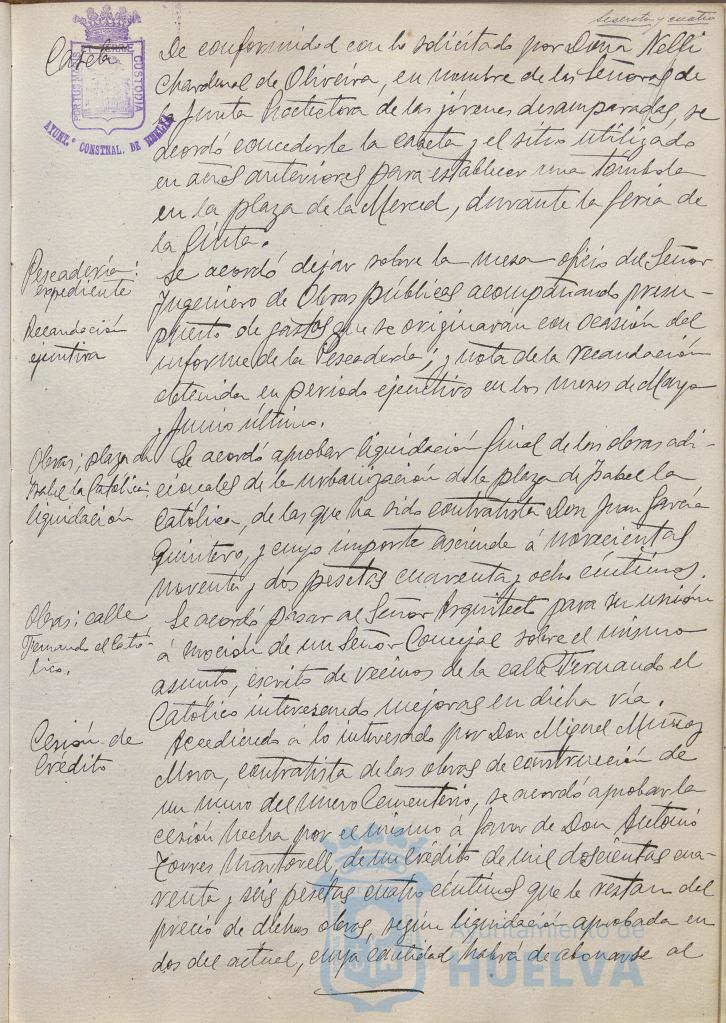 Sesenta y cuatro
Caseta
PORTUS MARIS ET TERRE CUSTODIA
AYUNT.º CONSTNAL. DE HUELVA
De conformidad con lo solicitado por Doña Nelli
Chardenal de Oliveira, en nombre de las Señoras de
la Junta Protectora de las jóvenes desamparadas, se
acordó concederle la caseta y el sitio utilizado
en años anteriores para establecer una tómbola
en la plaza de la Merced, durante la feria de
la Cinta.
Pescadería:
expediente
Recaudación
ejecutiva
Se acordó dejar sobre la mesa oficio del Señor
Ingeniero de Obras públicas acompañando presu-
puesto de gastos que se originarán con ocasión del
informe de la Pescadería; y nota de la recaudación
obtenida en periodo ejecutivo en los meses de Mayo
y Junio último.
Obras; plaza de
Isabel la Católica;
liquidación
Se acordó aprobar liquidación final de las obras adi-
cionales de la urbanización de la plaza de Isabel la
Católica, de las que ha sido contratista Don Juan García
Quintero, y cuyo importe asciende á novecientas
noventa y dos pesetas cuarenta y ocho céntimos.
Obras; calle
Fernando el Cató-
lico.
Se acordó pasar al Señor Arquitecto para su unión
á moción de un Señor Concejal sobre el mismo
asunto, escrito de vecinos de la calle Fernando el
Católico interesando mejoras en dicha vía.
Cesión de
Crédito
Accediendo a lo interesado por Don Miguel Muñoz
Mora, contratista de las obras de construcción de
un muro del nuevo Cementerio, se acordó aprobar la
cesión hecha por el mismo á favor de Don Antonio
Torres Martorell, de un crédito de mil doscientas cua-
renta y seis pesetas cuatro céntimos que le restan del
precio de dichas obras, según liquidación aprobada en
dos del actual, cuya cantidad habrá de abonarse al
Ayuntamiento de
HUELVA